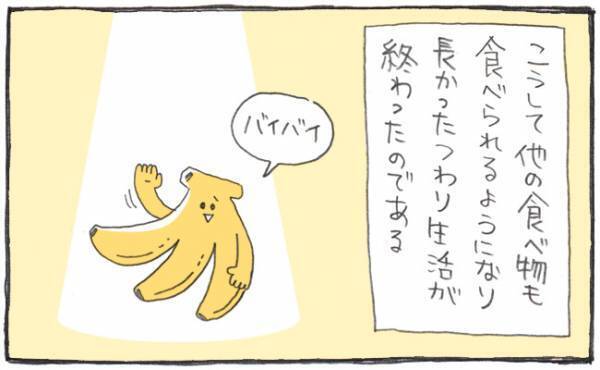 こうして他の食べ物も
食べられるようになり
長かったつわり生活が
終わったのである
バイバイ